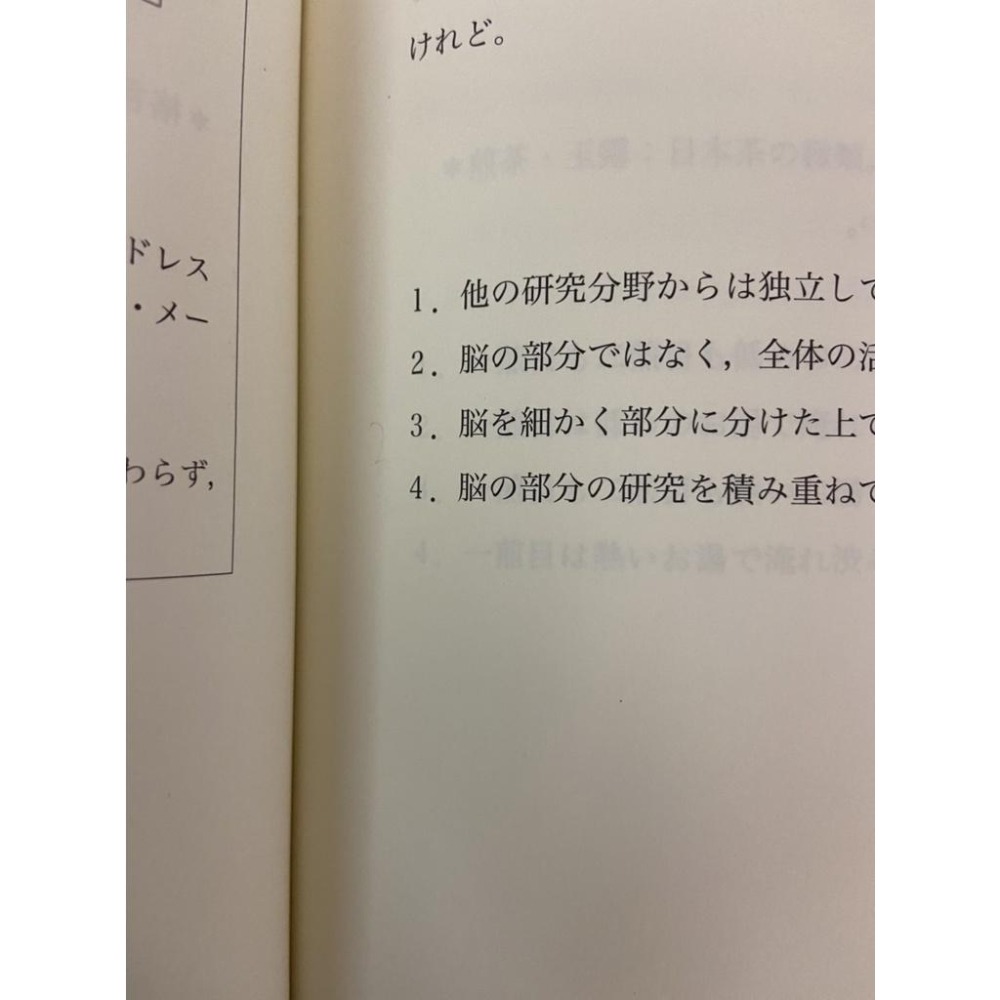 ドレス
・メー
わらず，
けれど。
1．他の研究分野からは独立して
2．脳の部分ではなく，全体の活
3．脳を細かく部分に分けた上で
4．脳の部分の研究を積み重ねて